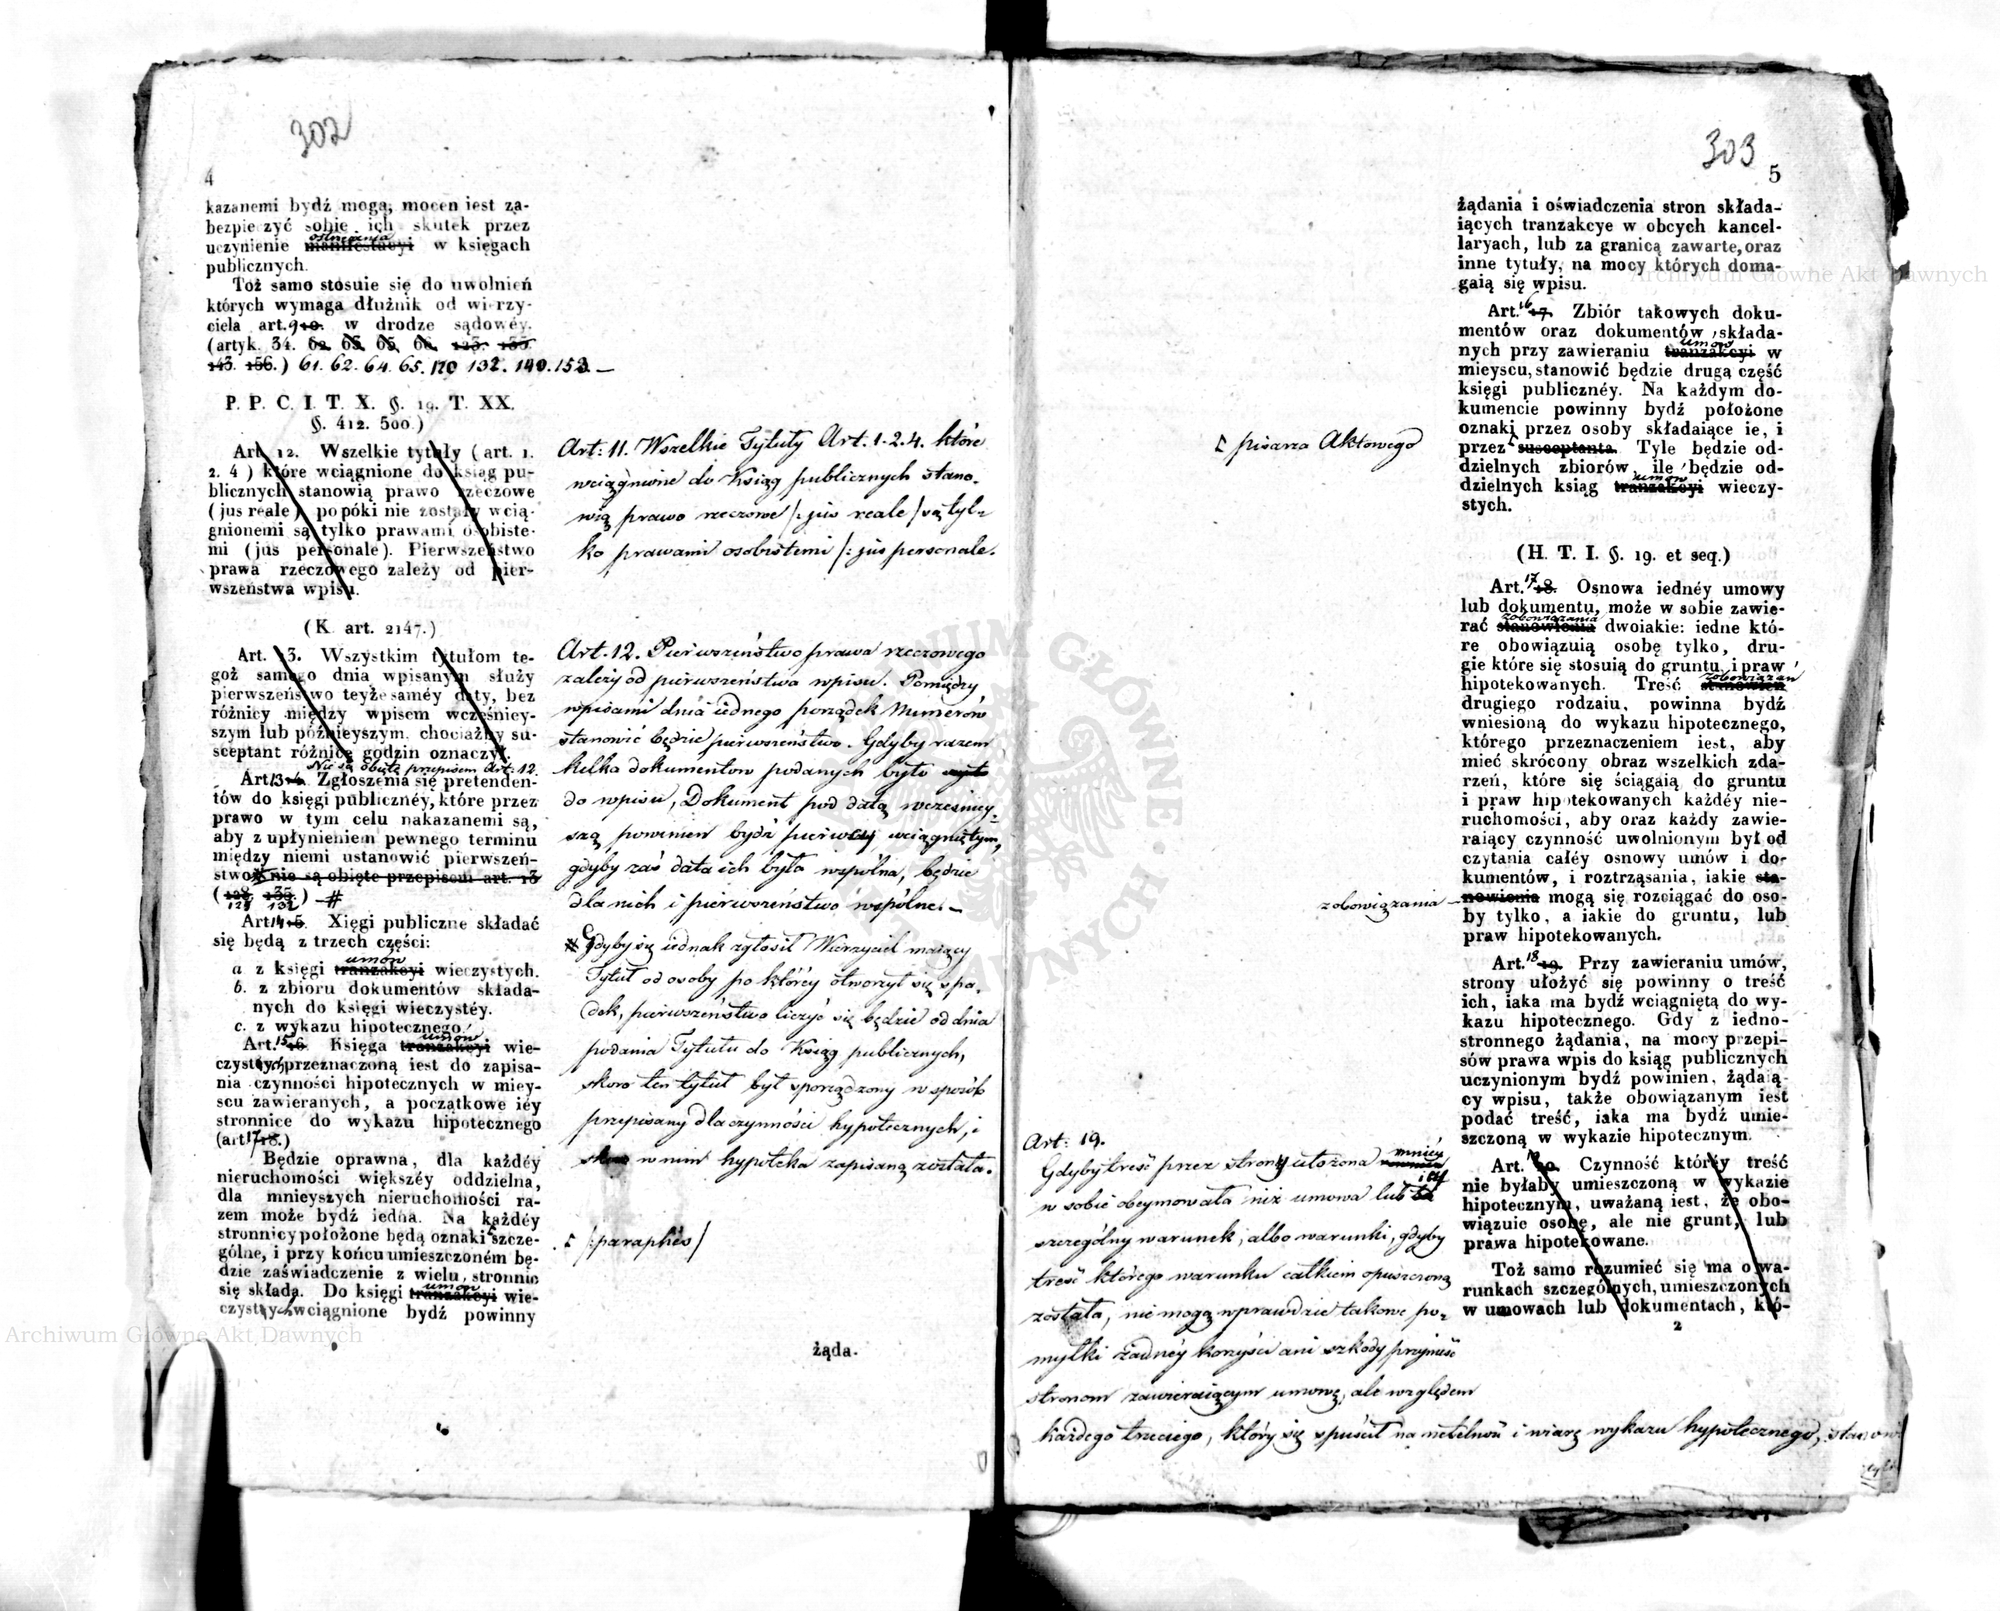 302
4
kazanemi bydź mogą, mocen iest za-
bezpieczyć sobie ich skutek przez
ostrzeżenia
uczynienie manifestacyi w księgach
publicznych.
Toż samo stosuie się do uwolnień
których wymaga dłużnik od wierzy-
ciela art. 9 10. w drodze sądowéy.
(artyk. 34. 62. 63. 65. 66. 123. 135.
143. 156.) 61. 62. 64. 65. 120 132. 140. 153. —
P. P. C. I. T. X. §. 19. T. XX.
§. 412. 500.)
Art. 12. Wszelkie tytuły (art. 1.
2. 4) które wciągnione do ksiąg pu-
blicznych stanowią prawo rzeczowe
(jus reale) popóki nie zostały wcią-
gnionemi są tylko prawami osobiste-
mi (jus personale). Pierwszeństwo
prawa rzeczowego zależy od pier-
wszeństwa wpisu.
(K. art. 2147.)
Art. 13. Wszystkim tytułom te-
goż samego dnia wpisanym służy
pierwszeństwo teyże saméy daty, bez
różnicy między wpisem wcześniey-
szym lub późnieyszym, chociażby su-
sceptant różnicę godzin oznaczył.
Nie są objęte przepisem Art: 12.
Art. 13 14. Zgłoszenia się pretenden-
tów do księgi publicznéy, które przez
prawo w tym celu nakazanemi są,
aby z upłynieniem pewnego terminu
między niemi ustanowić pierwszeń-
stwo nie są obięte przepisem art. 13
(128. 135.) #
121 132
Art. 14 15. Xięgi publiczne składać
się będą z trzech części:
umów
a z księgi tranzakcyi wieczystych.
b. z zbioru dokumentów składa-
nych do księgi wieczystéy.
c. z wykazu hipotecznego.
umów
Art. 15 16. Księga tranzakcyi wie-
czystych przeznaczoną iest do zapisa-
nia czynności hipotecznych w miey-
scu zawieranych, a początkowe iéy
stronnice do wykazu hipotecznego
(art. 17 18.)
Będzie oprawna, dla każdéy
nieruchomości większéy oddzielna,
dla mnieyszych nieruchomości ra-
zem może bydź iedna. Na każdéy
stronnicy położone będą oznaki szcze-
gólne, i przy końcu umieszczoném bę-
dzie zaświadczenie z wielu stronnic
umów
się składa. Do księgi tranzakcyi wie-
czystych wciągnione bydź powinny
Art: 11. Wszelkie Tytuły Art. 1. 2. 4. które
wciągnione do Ksiąg publicznych stano-
wią prawo rzeczowe /: jus reale / są tyl-
ko prawami osobistemi /: jus personale.
Art. 12. Pierwszeństwo prawa rzeczowego
zależy od pierwszeństwa wpisu. Pomiędzy
wpisami dnia iednego porządek Numerów
stanowić będzie pierwszeństwo. Gdyby razem
kilka dokumentów podanych było
do wpisu, Dokument pod datą wcześniey-
szą powinien bydź pierwéy wciągniętym,
gdyby zaś data ich była wspólna, będzie
dla nich i pierwszeństwo wspólne. —
# Gdyby się iednak zgłosił Wierzyciel maiący
Tytuł od osoby po któréy otworzył się spa-
dek, pierwszeństwo liczyć się będzie od dnia
podania Tytułu do Ksiąg publicznych,
skoro ten tytuł był sporządzony w sposób
przepisany dla czynności hypotecznych, i
w nim hypoteka zapisaną została.
/: paraphes /
żąda-
303
5
żądania i oświadczenia stron składa-
iących tranzakcye w obcych kancel-
laryach, lub za granicą zawarte, oraz
inne tytuły, na mocy których doma-
gaią się wpisu.
Art. 16 17. Zbiór takowych doku-
mentów oraz dokumentów składa-
umów
nych przy zawieraniu tranzakcyi w
mieyscu, stanowić będzie drugą część
księgi publicznéy. Na każdym do-
kumencie powinny bydź położone
oznaki przez osoby składaiące ie, i
przez susceptanta. Tyle będzie od-
dzielnych zbiorów, ile będzie od-
umów
dzielnych ksiąg tranzakcyi wieczy-
stych.
pisarza Aktowego
(H. T. I. §. 19. et seq.)
Art. 17 18. Osnowa iednéy umowy
lub dokumentu, może w sobie zawie-
zobowiązania
rać stanowienia dwoiakie: iedne któ-
re obowiązuią osobę tylko, dru-
gie które się stosuią do gruntu i praw
zobowiązań
hipotekowanych. Treść stanowień
drugiego rodzaiu, powinna bydź
wniesioną do wykazu hipotecznego,
którego przeznaczeniem iest, aby
mieć skrócony obraz wszelkich zda-
rzeń, które się ściągaią do gruntu
i praw hipotekowanych każdéy nie-
ruchomości, aby oraz każdy zawie-
raiący czynność uwolnionym był od
czytania całéy osnowy umów i do-
kumentów, i roztrząsania, iakie sta-
zobowiązania — nowienia mogą się rozciągać do oso-
by tylko, a iakie do gruntu, lub
praw hipotekowanych.
Art. 18 19. Przy zawieraniu umów,
strony ułożyć się powinny o treść
ich, iaka ma bydź wciągniętą do wy-
kazu hipotecznego. Gdy z iedno-
stronnego żądania, na mocy przepi-
sów prawa wpis do ksiąg publicznych
uczynionym bydź powinien, żądaią-
cy wpisu, także obowiązanym iest
podać treść, iaka ma bydź umie-
szczoną w wykazie hipotecznym.
Art. 20. Czynność któréy treść
nie byłaby umieszczoną w wykazie
hipotecznym, uważaną iest, że obo-
wiązuie osobę, ale nie grunt, lub
prawa hipotekowane.
Toż samo rozumieć się ma o wa-
runkach szczególnych, umieszczonych
w umowach lub dokumentach, któ-
2
Art: 19.
Gdyby treść przez strony ułożona mniéy
w sobie obeymowała niż umowa lub iéy
szczególny warunek, albo warunki, gdyby
treść którego warunku całkiem opuszczoną
została, nie mogą wprawdzie takowe po-
myłki żadnéy korzyści ani szkody przynieść
stronom zawieraiącym umowę, ale względem
każdego trzeciego, który się spuścił na rzetelność i wiarę wykazu hypotecznego, stanowi
Archiwum Główne Akt Dawnych
Archiwum Główne Akt Dawnych
ARCHIWUM GŁÓWNE AKT DAWNYCH